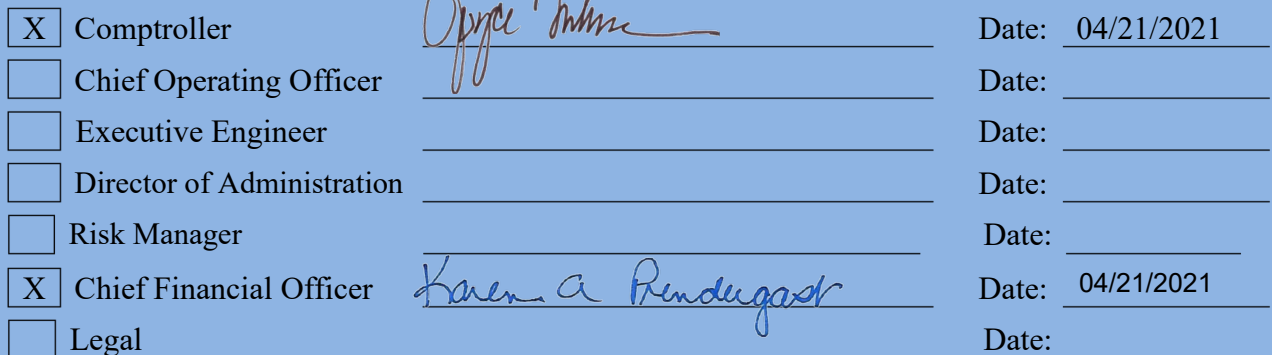 X Comptroller Date: 04/21/2021
Chief Operating Officer Date:
Executive Engineer Date:
Director of Administration Date:
Risk Manager Date:
X Chief Financial Officer Karen A Pendergast Date: 04/21/2021
Legal Date: